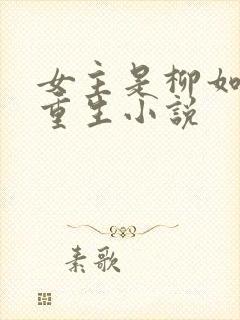 女主是柳如
重生小说
素歌